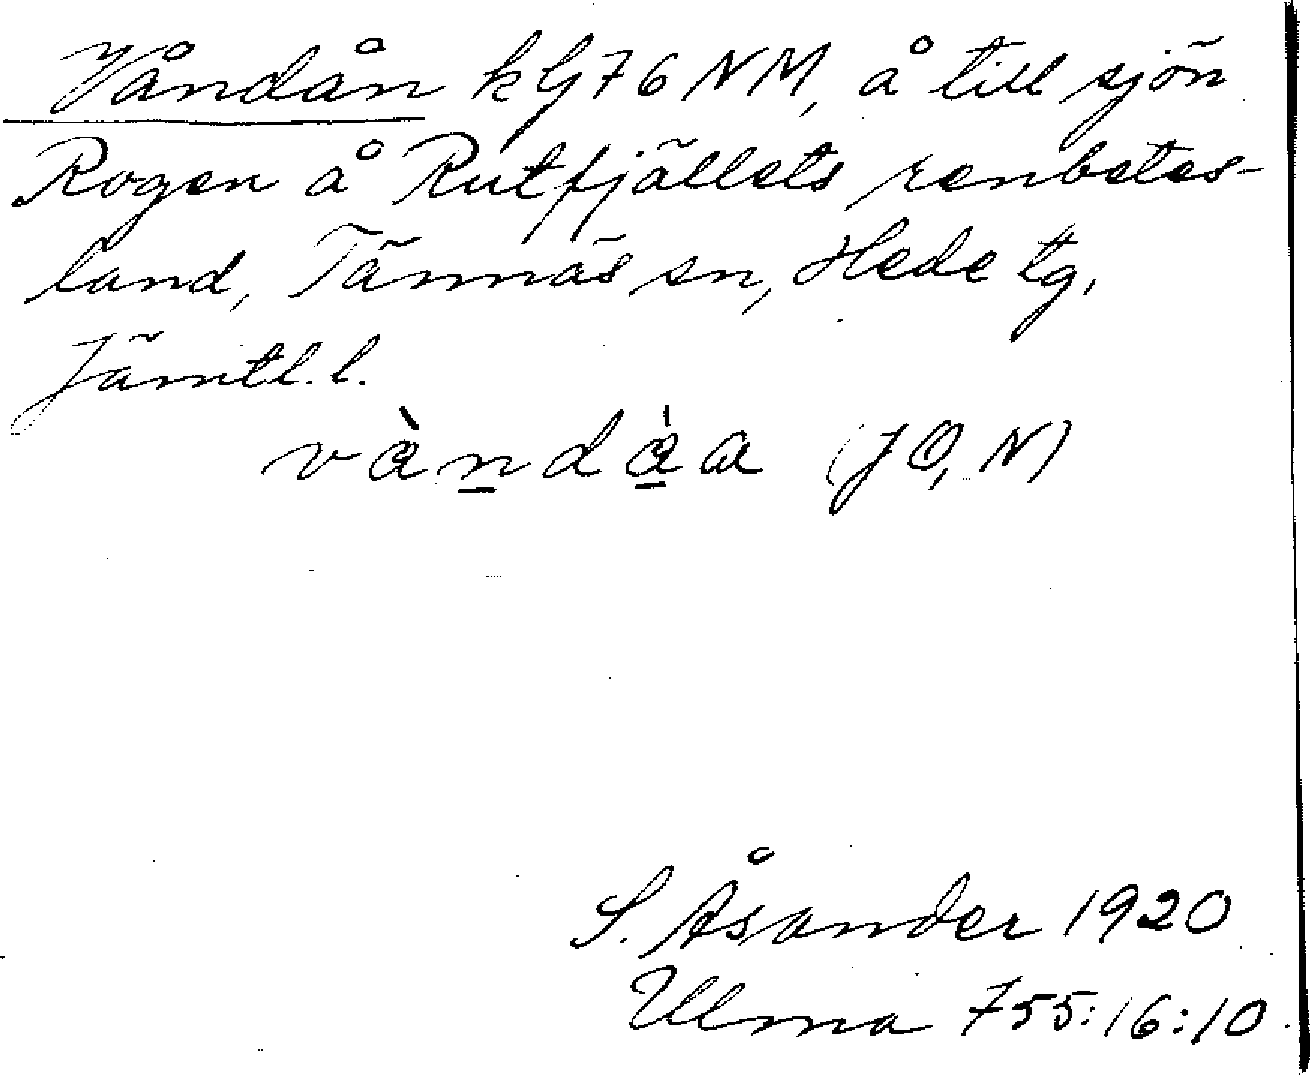 Våndån kG76NM, å till sjön
Rogen å Rutfjällets renbetes-
land, Tännäs sn, Hede tg,
Jämtl. l.
vàndȧa (JO, N)
S. Åsander 1920
Ulma 755:16:10